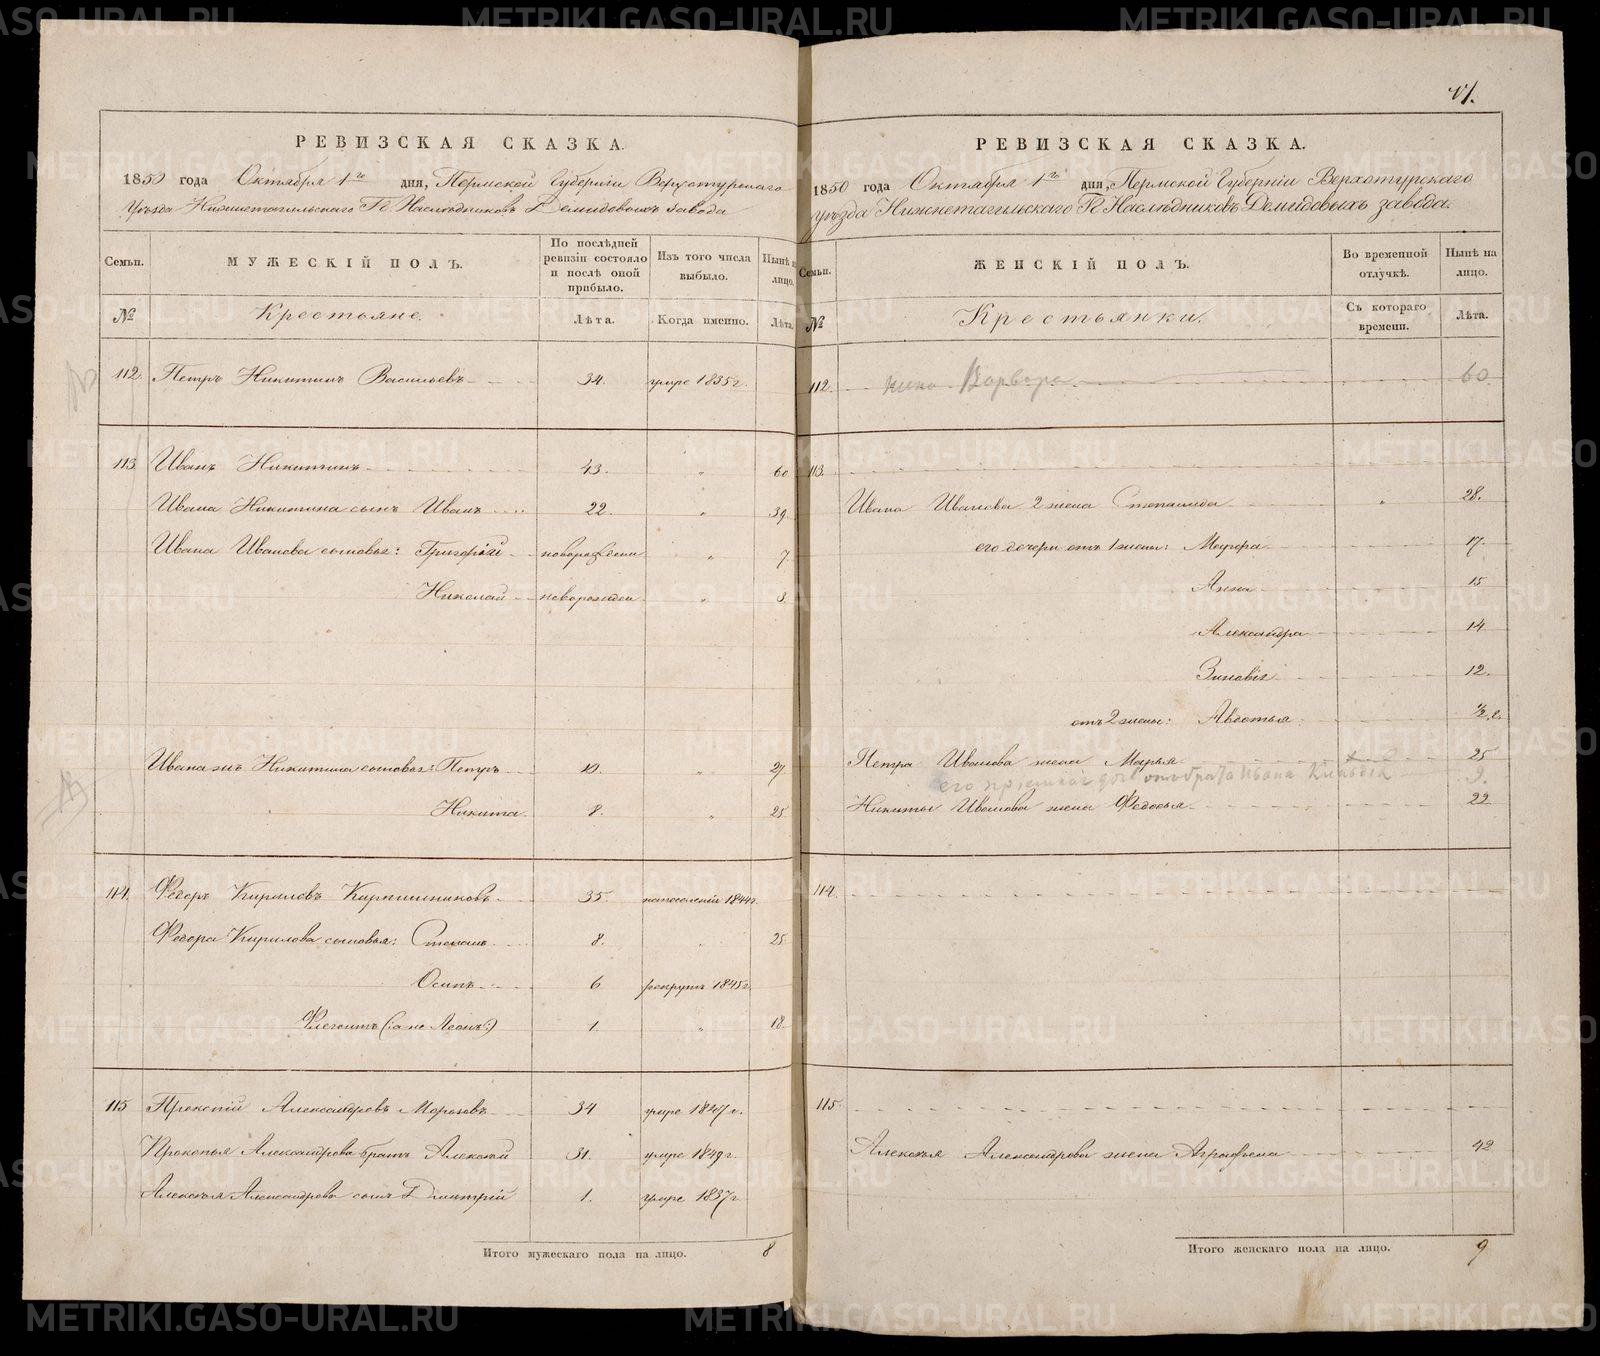 РЕВИЗСКАЯ СКАЗКА.
1850 года Октября 1го дня, Пермской Губерніи Верхотурскаго
уѣзда Нижнетагильскаго Гг. Наслѣдниковъ Демидовыхъ завода
Семьи. МУЖЕСКІЙ ПОЛЪ. По послѣдней ревизіи состояло и послѣ оной прибыло. Изъ того числа выбыло. Нынѣ на лицо.
№ Крестьяне. Лѣта. Когда именно. Лѣта.
112. Петръ Никитинъ Васильевъ 34. умре 1835 г.
113. Иванъ Никитинъ 43. " 60
Ивана Никитина сынъ Иванъ 22. " 39.
Ивана Иванова сыновья: Григорій новорожден " 7
Николай новорожден " 3.
Ивана жъ Никитина сыновья: Петръ 10. " 27
Никита 8. " 25
114. Ѳедоръ Кириловъ Кирпишниковъ 35. на поселеніи 1844 г.
Ѳедора Кирилова сыновья: Степанъ 8. " 25
Осипъ 6 рекрутъ 1845 г.
Флегонтъ (: а не Леонъ:) 1. " 18
115 Прокопій Александровъ Морозовъ 34 умре 1847 г.
Прокопья Александрова братъ Алексѣй 31. умре 1849 г
Алексѣя Александрова сынъ Дмитрій 1. умре 1837 г
Итого мужескаго пола на лицо. 8
РЕВИЗСКАЯ СКАЗКА.
1850 года Октября 1го дня, Пермской Губерніи Верхотурскаго
уѣзда Нижнетагильскаго Гг Наслѣдниковъ Демидовыхъ завода.
Семьи. ЖЕНСКІЙ ПОЛЪ. Во временной отлучкѣ. Нынѣ на лицо.
№ Крестьянки. Съ котораго времени. Лѣта.
112. жена Варвара 60.
113.
Ивана Иванова 2 жена Степанида " 28.
его дочери отъ 1 жены: Мавра 17.
Анна 15
Александра 14.
Зиновія 12.
отъ 2 жены: Авдотья 1/2 г.
Петра Иванова жена Марья 25
его пріемная доч отъ брата Ивана 9.
Никиты Иванова жена Ѳедосья 22
114.
115.
Алексѣя Александрова жена Аграфена 42
Итого женскаго пола на лицо. 9
METRIKI.GASO-URAL.RU